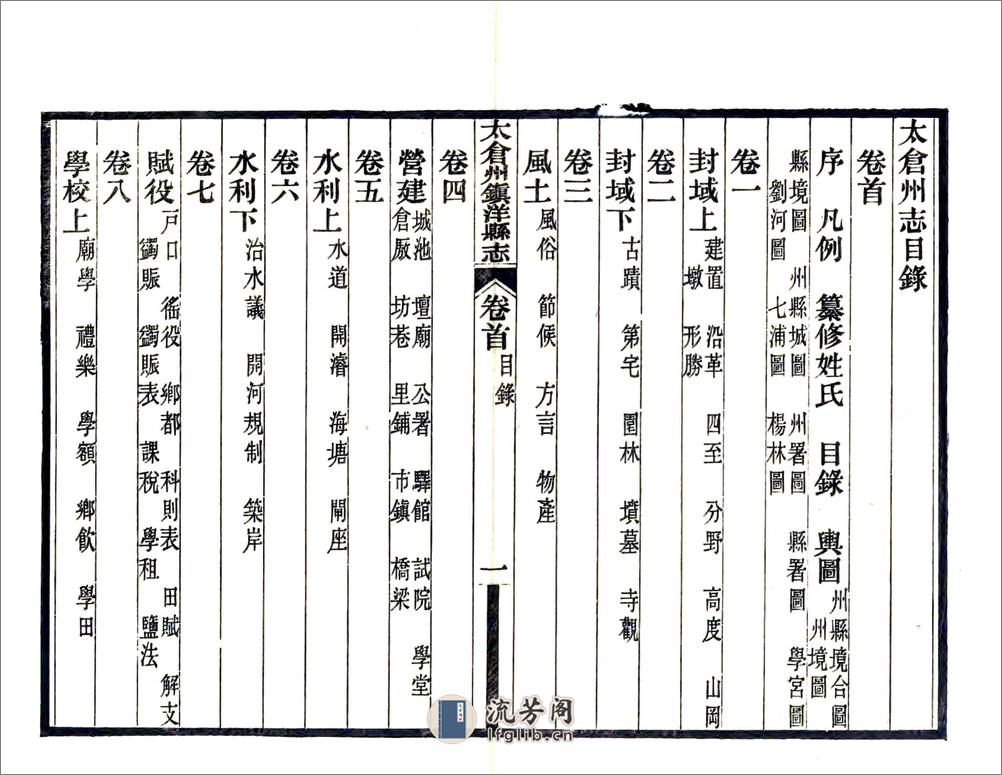 太倉州志目錄
卷首
序 凡例 纂修姓氏 目錄 輿圖 州縣境合圖 州境圖
縣境圖 州縣城圖 州署圖 縣署圖 學宮圖
劉河圖 七浦圖 楊林圖
卷一
封域上 建置 沿革 四至 分野 高度 山岡
墩 形勝
卷二
封域下 古蹟 第宅 園林 墳墓 寺觀
卷三
風土 風俗 節候 方言 物產
太倉州鎮洋縣志 卷首 目錄 一
卷四
營建 城池 壇廟 公署 驛館 試院 學堂
倉厫 坊巷 里鋪 市鎮 橋梁
卷五
水利上 水道 開濬 海塘 閘座
卷六
水利下 治水議 開河規制 築岸
卷七
賦役 戶口 徭役 鄉都 科則表 田賦 解支
蠲賑 蠲賑表 課稅 學租 鹽法
卷八
學校上 廟學 禮樂 學額 鄉飲 學田
流芳阁
lfglib.cn